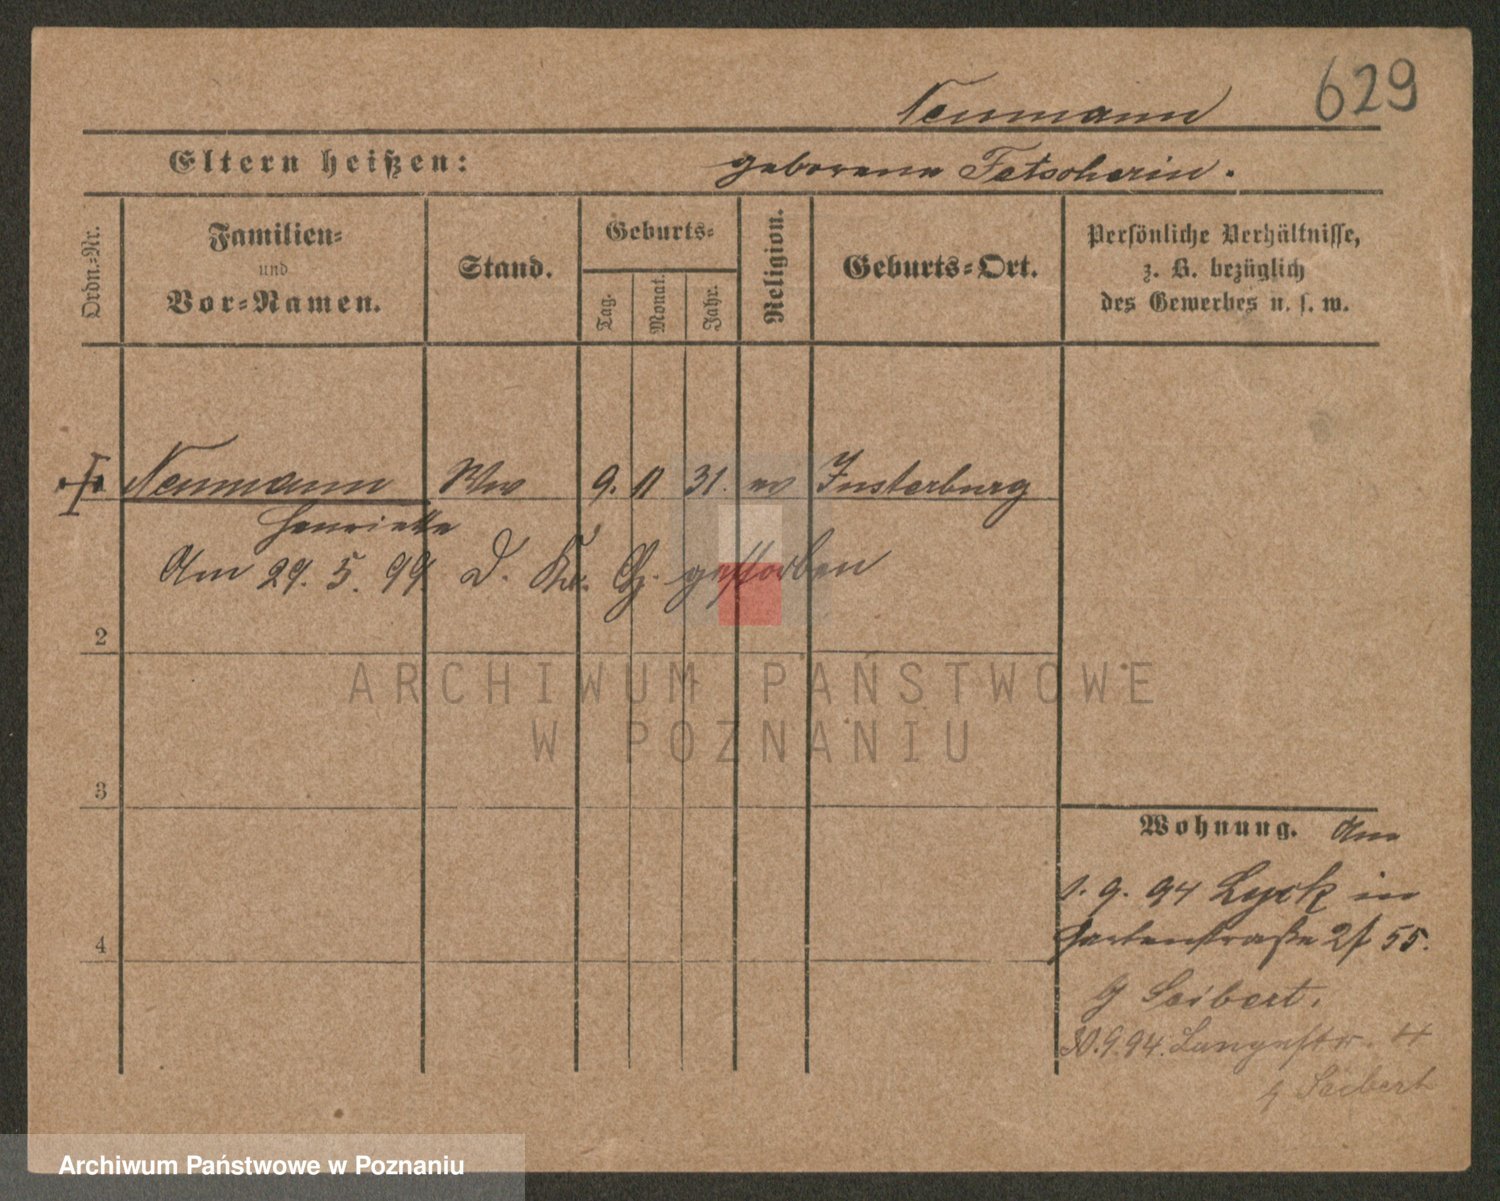 629
Neumann
Eltern heißen: geborene Fetscherin.
Ordn.-Nr.
Familien-
und
Vor-Namen.
Stand.
Geburts-
Tag.
Monat.
Jahr.
Religion.
Geburts-Ort.
Persönliche Verhältnisse,
z. B. bezüglich
des Gewerbes u. s. w.
Neumann Ww 9. 11 31. ev Insterburg
Henriette
Am 29. 5. 99. D. Kr. gestorben
2
3
4
ARCHIWUM PAŃSTWOWE
W POZNANIU
Wohnung. Am
1. 9. 94 Lyck in
Gartenstraße 2/ 55.
Seibert.
30.9.94. Langestr. 4
Seibert
Archiwum Państwowe w Poznaniu